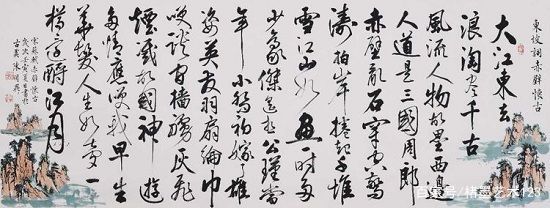 東坡詞赤壁懷古
大江東去
浪淘盡千古
風流人物故壘西邊
人道是三國周郎
赤壁亂石穿空驚
濤拍岸捲起千堆
雪江山如畫一時多
少豪傑遙想公瑾當
年小喬初嫁了雄
姿英發羽扇綸巾
笑談間檣櫓灰飛
煙滅故國神遊
多情應笑我早生
華髮人生如夢一
樽還酹江月
宋蘇軾赤壁懷古
百家号/楮墨艺术123